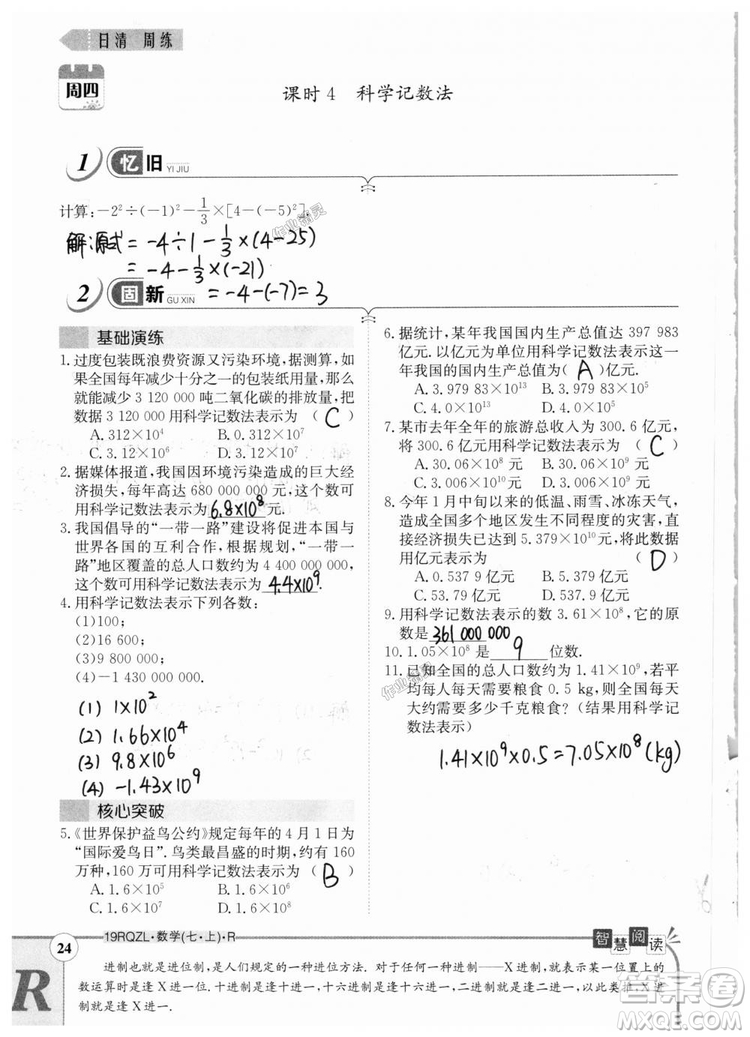 日清 周练
周四
课时4 科学记数法
1 忆旧 YI JIU
计算:-2²÷(-1)²-1/3×[4-(-5)²].
解:源式=-4÷1-1/3×(4-25)
=-4-1/3×(-21)
=-4-(-7)=3
2 固新 GU XIN
基础演练
1. 过度包装既浪费资源又污染环境,据测算,如
果全国每年减少十分之一的包装纸用量,那么
能减少3 120 000吨二氧化碳的排放量,把
数据3 120 000用科学记数法表示为 ( C )
A. 312×10⁴ B. 0.312×10⁷
C. 3.12×10⁶ D. 3.12×10⁷
2. 据媒体报道,我国因环境污染造成的巨大经
济损失,每年高达680 000 000元,这个数可
用科学记数法表示为6.8×10⁸.
3. 我国倡导的“一带一路”建设将促进本国与
世界各国的互利合作,根据规划,“一带一
路”地区覆盖的总人口数约为4 400 000 000,
这个数可用科学记数法表示为4.4×10⁹.
4. 用科学记数法表示下列各数:
(1)100;
(2)16 600;
(4)-1 430 000 000.
(1) 1×10²
(2) 1.66×10⁴
(3) 9.8×10⁶
(4) -1.43×10⁹
核心突破
5. 《世界保护益鸟公约》规定每年的4月1日为
“国际爱鸟日”.鸟类最昌盛的时期,约有160
万种,160万可用科学记数法表示为 ( B )
A. 1.6×10⁵ B. 1.6×10⁶
C. 1.6×10⁷ D. 1.6×10⁸
6. 据统计,某年我国国内生产总值达397 983
亿元.以亿元为单位用科学记数法表示这一
年我国的国内生产总值为( A )亿元.
A. 3.979 83×10¹³ B. 3.979 83×10⁵
C. 4.0×10¹³ D. 4.0×10⁵
7. 某市去年全年的旅游总收入为300.6亿元,
将300.6亿元用科学记数法表示为 ( C )
A. 30.06×10⁸元 B. 30.06×10⁹元
C. 3.006×10¹⁰元 D. 3.006×10⁹元
8. 今年1月中旬以来的低温、雨雪、冰冻天气,
造成全国多个地区发生不同程度的灾害,直
接经济损失已达到5.379×10¹⁰元,将此数据
用亿元表示为 ( D )
A. 0.537 9亿元 B. 5.379亿元
C. 53.79亿元 D. 537.9亿元
9. 用科学记数法表示的数3.61×10⁸,它的原
数是361 000 000.
10. 1.05×10⁸是 9 位数.
11. 已知全国的总人口数约为1.41×10⁹,若平
均每人每天需要粮食0.5 kg,则全国每天
大约需要多少千克粮食?(结果用科学记
数法表示)
1.41×10⁹×0.5=7.05×10⁸(kg)
24
19RQZL·数学(七·上)·R
智慧阅读
R
进制也就是进位制,是人们规定的一种进位方法.对于任何一种进制——X进制,就表示某一位置上的
数运算时是逢X进一位.十进制是逢十进一,十六进制是逢十六进一,二进制就是逢二进一,以此类推,X进
制就是逢X进一.
作业精灵
作业精灵
答案圈